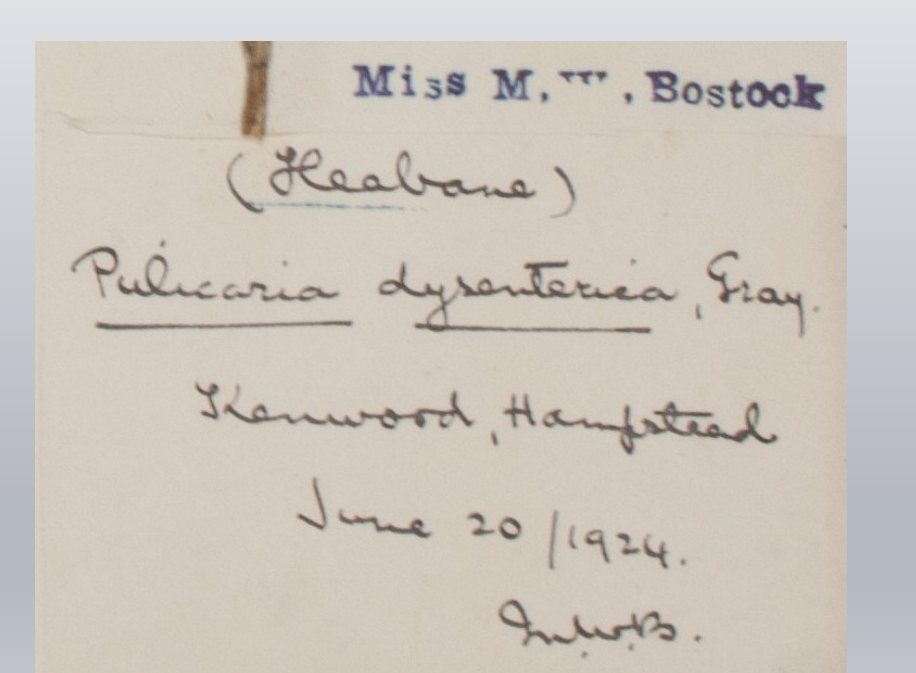 Miss M. W. Bostock
(Fleabane)
Pulicaria dysenterica, Gray.
Kenwood, Hampstead
June 20/1924.
M.W.B.